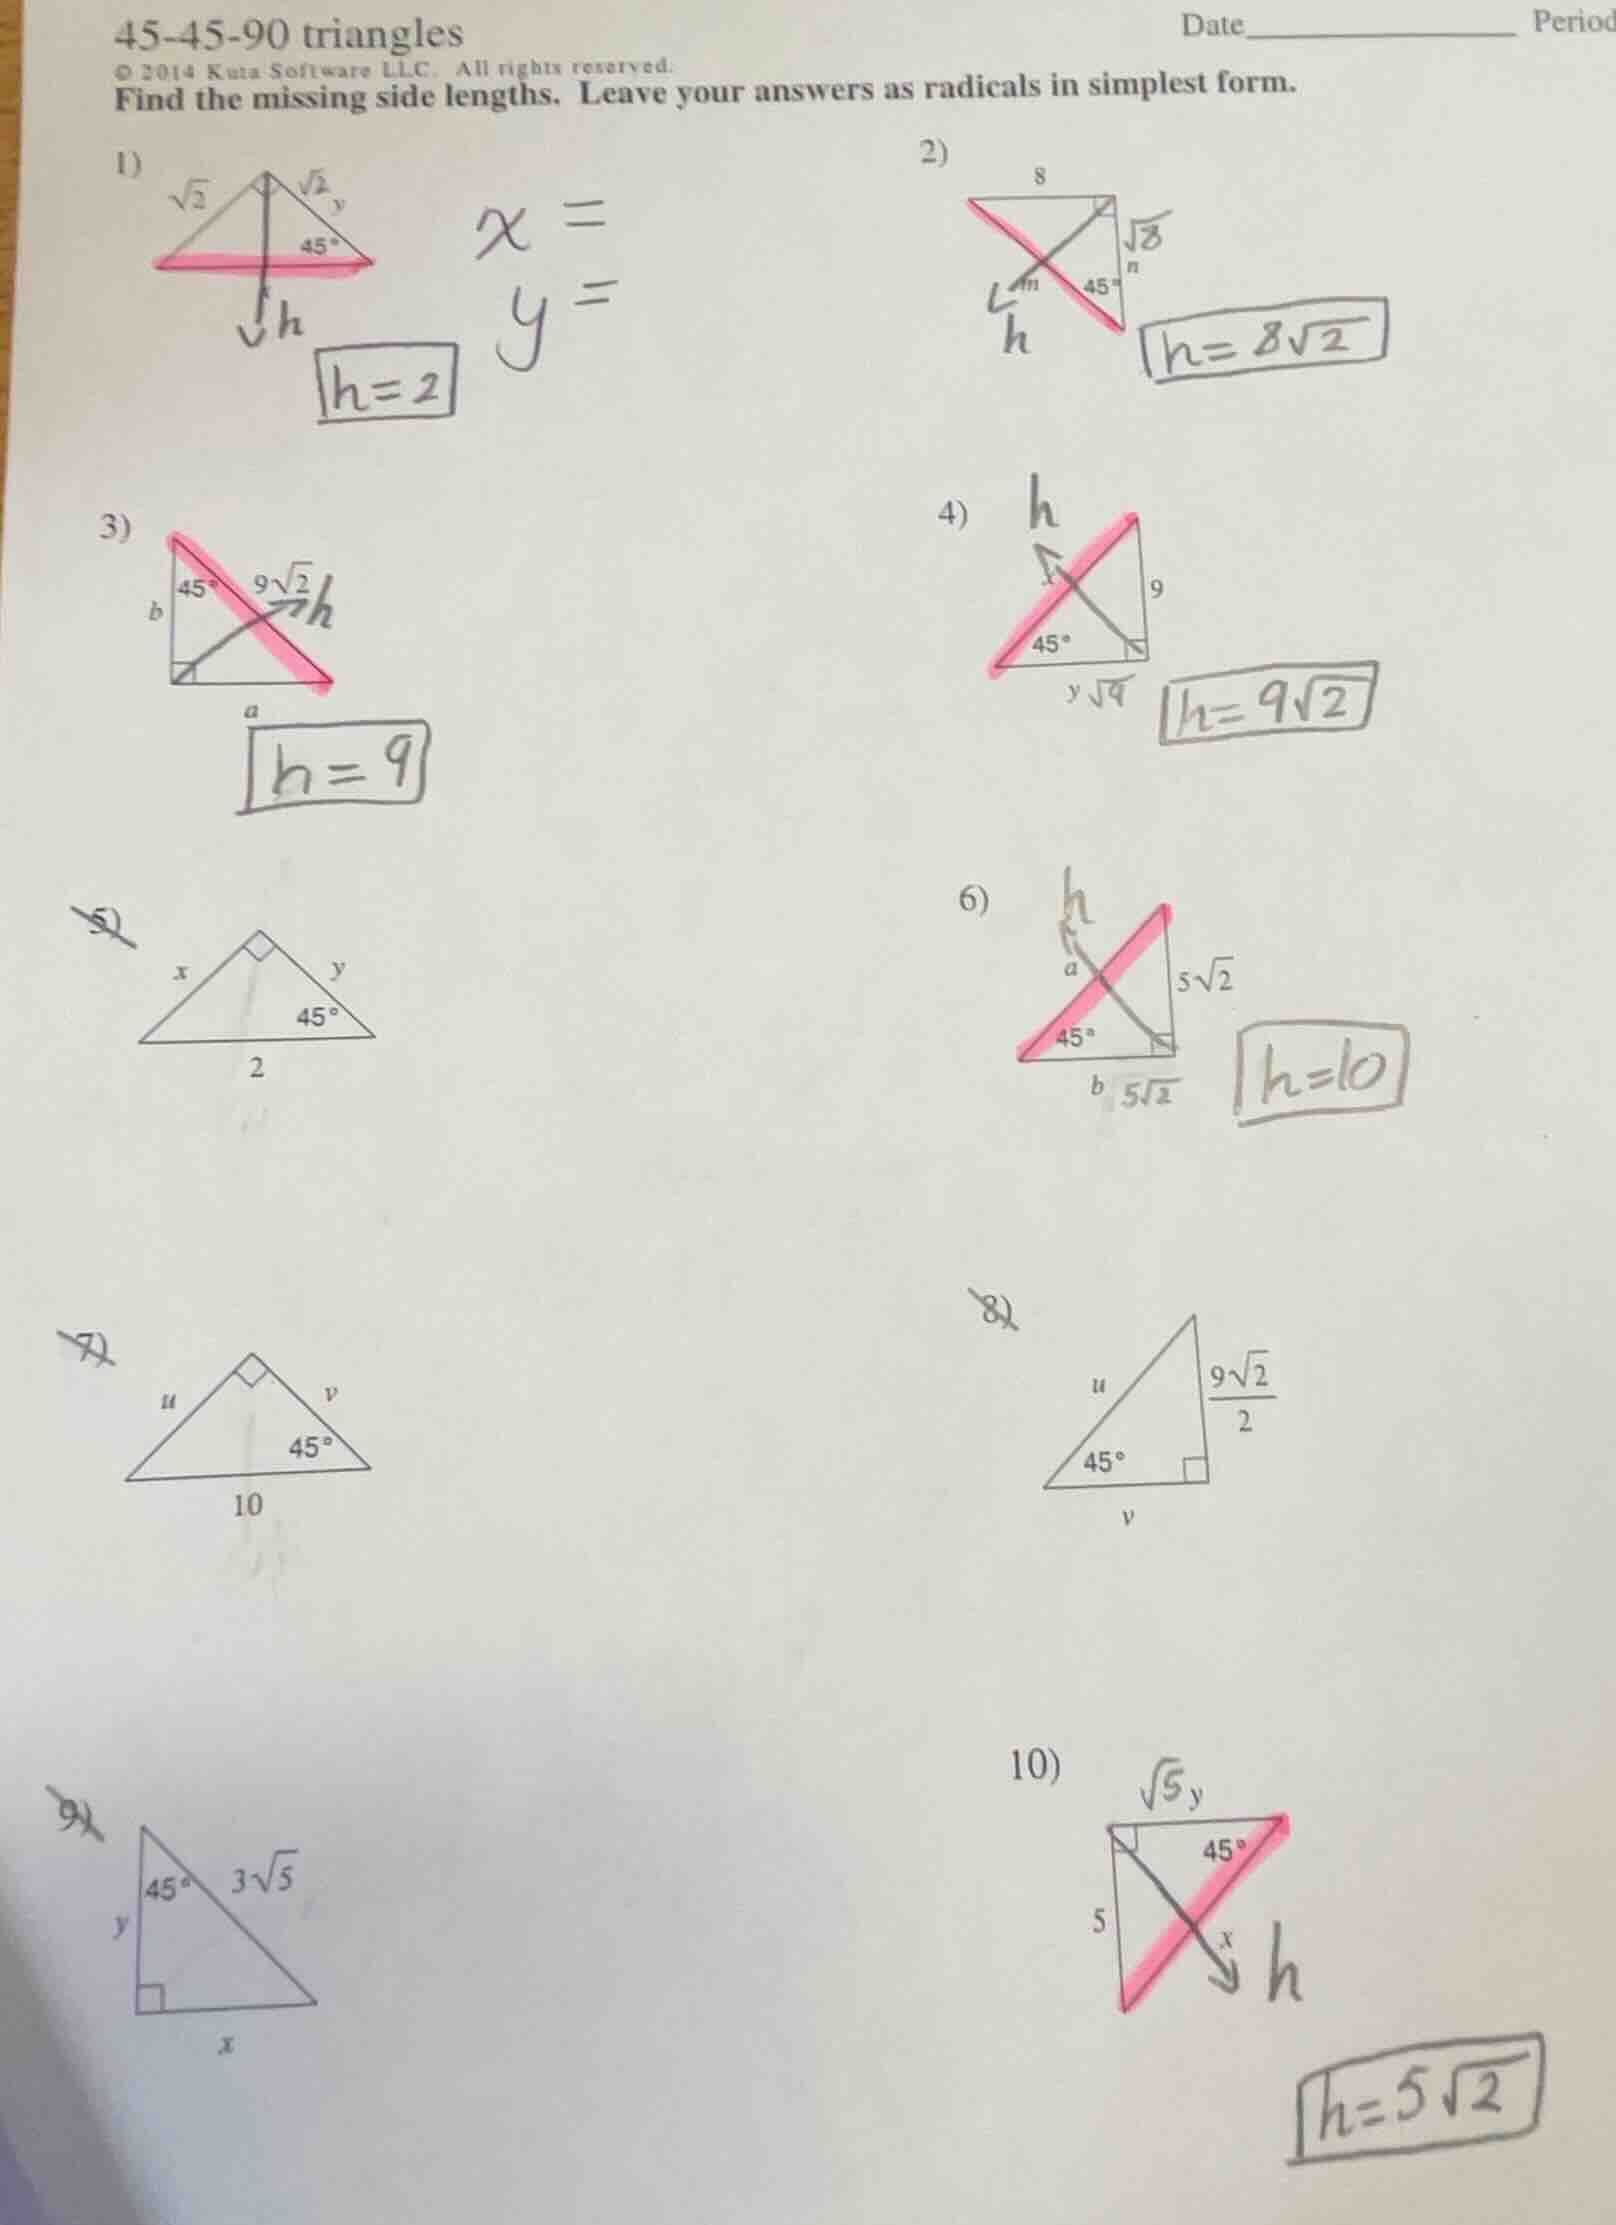 45-45-90 triangles
Date____________ Period
© 2014 Kuta Software LLC. All rights reserved.
Find the missing side lengths. Leave your answers as radicals in simplest form.
1)
√2
√2
y
45°
h
x =
y =
h=2
2)
8
√8
n
m
45°
h
h=8√2
3)
45°
9√2
h
b
a
h=9
4)
h
x
9
45°
y √9
h=9√2
5)
x
y
45°
2
6)
h
a
5√2
45°
b 5√2
h=10
7)
u
v
45°
10
8)
u
9√2
2
45°
v
9)
45°
3√5
y
x
10)
√5 y
45°
5
x
h
h=5√2